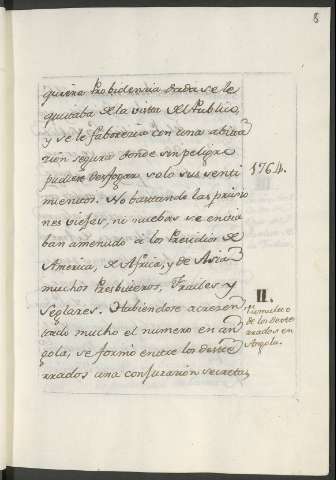 8
quiera Probidencia dada se le
quitaba de la vista del Publico,
y se le faborecia con una abita
zion segura donde sin peligro
pudiese desfogar solo sus senti
mientos. No bastando las prisio
nes viejas, ni nuebas se envia
ban amenudo à los Presidios de
America, de Africa, y de Asia
muchos Presbiteros, Frailes y
Seglares. Habiendose acrecen
tado mucho el numero en an
gola, se formò entre los deste
rrados una conjuracion secreta,
1764.
II.
Tumulto
de los deste
rrados en
Angola.